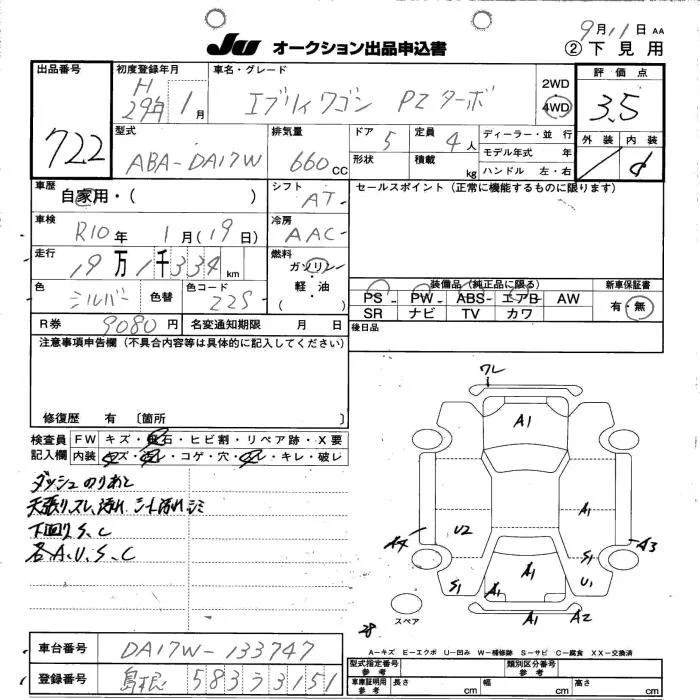 9月11日 AA
JU オークション出品申込書
② 下見用
出品番号
722
初度登録年月
H
29年 1月
車名・グレード
エブリィワゴン PZターボ
2WD
4WD
評価点
3.5
外装 内装
型式
ABA-DA17W
排気量
660 CC
ドア 5
定員 4人
形状
積載 kg
ディーラー・並 行
モデル年式 年
ハンドル 左・右
車歴
自家用・( )
シフト
AT-
セールスポイント (正常に機能するものに限ります)
車検
R10年 1月(19日)
冷房
AAC-
走行
19万1千334km
燃料
ガソリン
軽・油
( )
色
シルバー
色替
色コード
Z2S-
装備品(純正品に限る)
新車保証書
PS- PW- ABS- エアB- AW
SR ナビ TV カワ
有・無
R券 9080円
名変通知期限 月 日
後日品
注意事項申告欄 (不具合内容等は具体的に記入してください)
修復歴 有 〔箇所 〕
検査員
記入欄
FW キズ・飛石・ヒビ割・リペア跡・X要
内装 キズ・汚レ・コゲ・穴・スレ・キレ・破レ
ダッシュのりあと
天張りスレ、汚れ シート汚れシミ
下回りS、C
各A、U、S、C
ワレ
A1
A1
U2
A4
A3
S1
S1
U1
A1
A1
A1
A2
スペア
28
A-キズ E-エクボ U-凹み W-補修跡 S-サビ C-腐食 XX-交換済
車台番号
DA17W-133747
登録番号
島根 583 う 3151
型式指定番号
参考
類別区分番号
参考
車庫証明用
参考
長さ cm
幅 cm
高さ cm